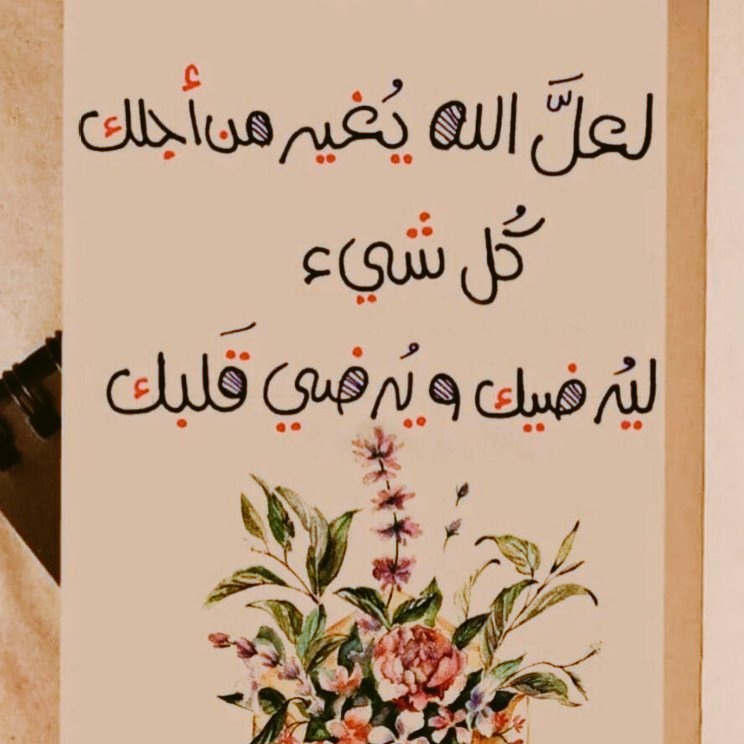 لعلَّ الله يُغير من أجلك
كُل شيء
ليُرضيك ويُرضي قَلبك